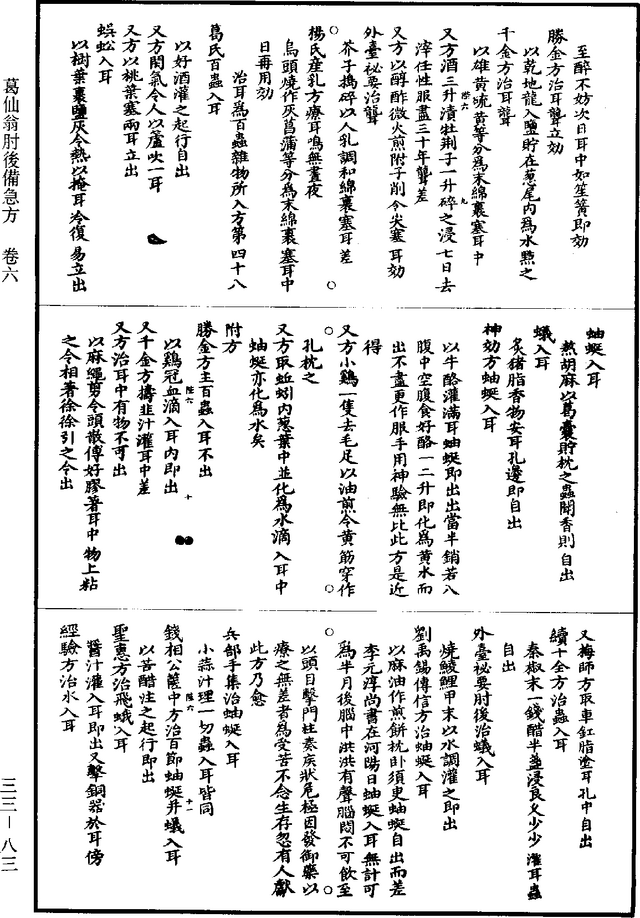 葛仙翁肘後備急方 卷六
至醉不妨次日耳中如笙簧即効
勝金方治耳聾立効
以乾地龍入鹽貯在葱尾内爲水㸃之
千金方治耳聾
以雄黄硫黄等分爲末綿裹塞耳中
又方酒三升漬牡荆子一升碎之浸七日去
滓任性服盡三十年聾差
又方以醇酢微火煎附子削令尖塞耳効
外臺祕要治聾
芥子搗碎以人乳調和綿裹塞耳差
楊氏産乳方療耳鳴無晝夜
烏頭燒作灰菖蒲等分爲末綿裹塞耳中
日再用効
治耳爲百蟲雜物所入方第四十八
葛氏百蟲入耳
以好酒灌之起行自出
又方閉氣令人以蘆吹一耳
又方以桃葉塞兩耳立出
蜈蚣入耳
以樹葉裹鹽灰令熱以掩耳冷復易立出
蚰蜒入耳
熬胡麻以葛囊貯枕之蟲聞香則自出
蟻入耳
炙猪脂香物安耳孔邊即自出
神効方蚰蜒入耳
以牛酪灌滿耳蚰蜒即出出當半銷若入
腹中空腹食好酪一二升即化爲黄水而
出不盡更作服手用神驗無比此方是近
得
又方小鷄一隻去毛足以油煎令黄筋穿作
孔枕之
又方取蚯蚓内葱葉中並化爲水滴入耳中
蚰蜒亦化爲水矣
附方
勝金方主百蟲入耳不出
以鷄冠血滴入耳内即出
又千金方擣韭汁灌耳中差
又方治耳中有物不可出
以麻繩剪令頭散傅好膠著耳中物上粘
之令相著徐徐引之令出
又梅師方取車釭脂塗耳孔中自出
續十全方治蟲入耳
秦椒末一錢醋半盞浸良乂少少灌耳蟲
自出
外臺祕要肘後治蟻入耳
燒鯪鯉甲末以水調灌之即出
劉禹錫傳信方治蚰蜒入耳
以麻油作煎餅枕卧須臾蚰蜒自出而差
李元淳尚書在河陽日蚰蜒入耳無計可
爲半月後腦中洪洪有聲腦悶不可飲至
以頭自擊門柱奏疾狀危極因發御藥以
療之無差者爲受苦不念生存忽有人獻
此方乃愈
兵部手集治蚰蜒入耳
小蒜汁理一切蟲入耳皆同
錢相公篋中方治百節蚰蜒并蟻入耳
以苦醋注之起行即出
聖惠方治飛蛾入耳
醬汁灌入耳即出又擊銅器於耳傍
經驗方治水入耳
三三—八三